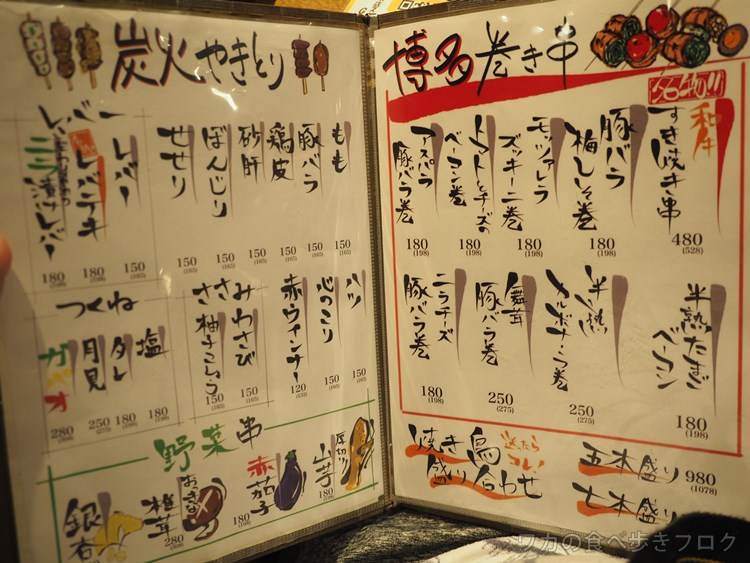 炭火やきとり
もも
150
(165)
豚バラ
150
(165)
鶏皮
150
(165)
砂肝
150
(165)
ぼんじり
150
(165)
せせり
150
(165)
レバー
150
(165)
レバテキ
180
(198)
180
(198)
ハツ
150
(165)
心のこり
150
(165)
赤ウインナー
120
ささみわさび
150
(165)
ささみ柚子こしょう
150
(165)
つくね
塩
180
(198)
タレ
180
(198)
月見
250
(275)
ガパオ
280
野菜串
厚切り
山芋
180
(198)
赤茄子
180
(198)
おっきな
椎茸
280
銀杏
博多巻き串
名物!!
和牛
すき焼き串
480
(528)
豚バラ
梅しそ巻
180
(198)
モッツァレラ
ズッキーニ巻
180
(198)
トマトとチーズの
ベーコン巻
180
(198)
アスパラ
豚バラ巻
180
(198)
半熟たまご
ベーコン
180
(198)
半熟
カルボナーラ巻
250
(275)
舞茸
豚バラ巻
250
(275)
ニラチーズ
豚バラ巻
180
(198)
焼き鳥
盛り合わせ
迷ったら
コレ!
五本盛り
980
(1078)
七本盛り
ワカの食べ歩きブログ